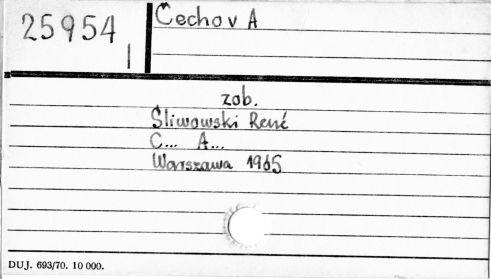 25954
Čechov A
zob.
Śliwowski René
C... A...
Warszawa 1965
DUJ. 693/70. 10 000.